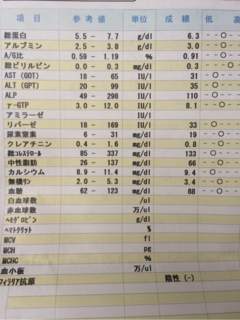 項目 参考値 単位 成績 低 高
総蛋白 5.5 - 7.7 g/dl 6.3
アルブミン 2.5 - 3.8 g/dl 3.0
A/G比 0.59 - 1.19 % 0.91
総ビリルビン 0.0 - 0.3 m/dl 0.3
AST (GOT) 18 - 65 IU/l 31
ALT (GPT) 20 - 99 IU/l 35
ALP 49 - 298 IU/l 110
γ-GTP 3.0 - 12.0 IU/l 8.1
アミラーゼ IU/l
リパーゼ 18 - 169 IU/l 33
尿素窒素 6 - 31 m/dl 19
クレアチニン 0.4 - 1.6 m/dl 0.8
総コレステロール 85 - 337 m/dl 133
中性脂肪 26 - 137 m/dl 66
カルシウム 8.9 - 11.4 m/dl 9.4
無機リン 2.0 - 5.3 m/dl 3.4
血糖 62 - 123 m/dl 88
白血球数 /ul
赤血球数 万/ul
ヘモグロビン g/dl
ヘマトクリット %
MCV fl
MCH pg
MCHC %
血小板 万/ul
フィラリア抗原 陰性(-)